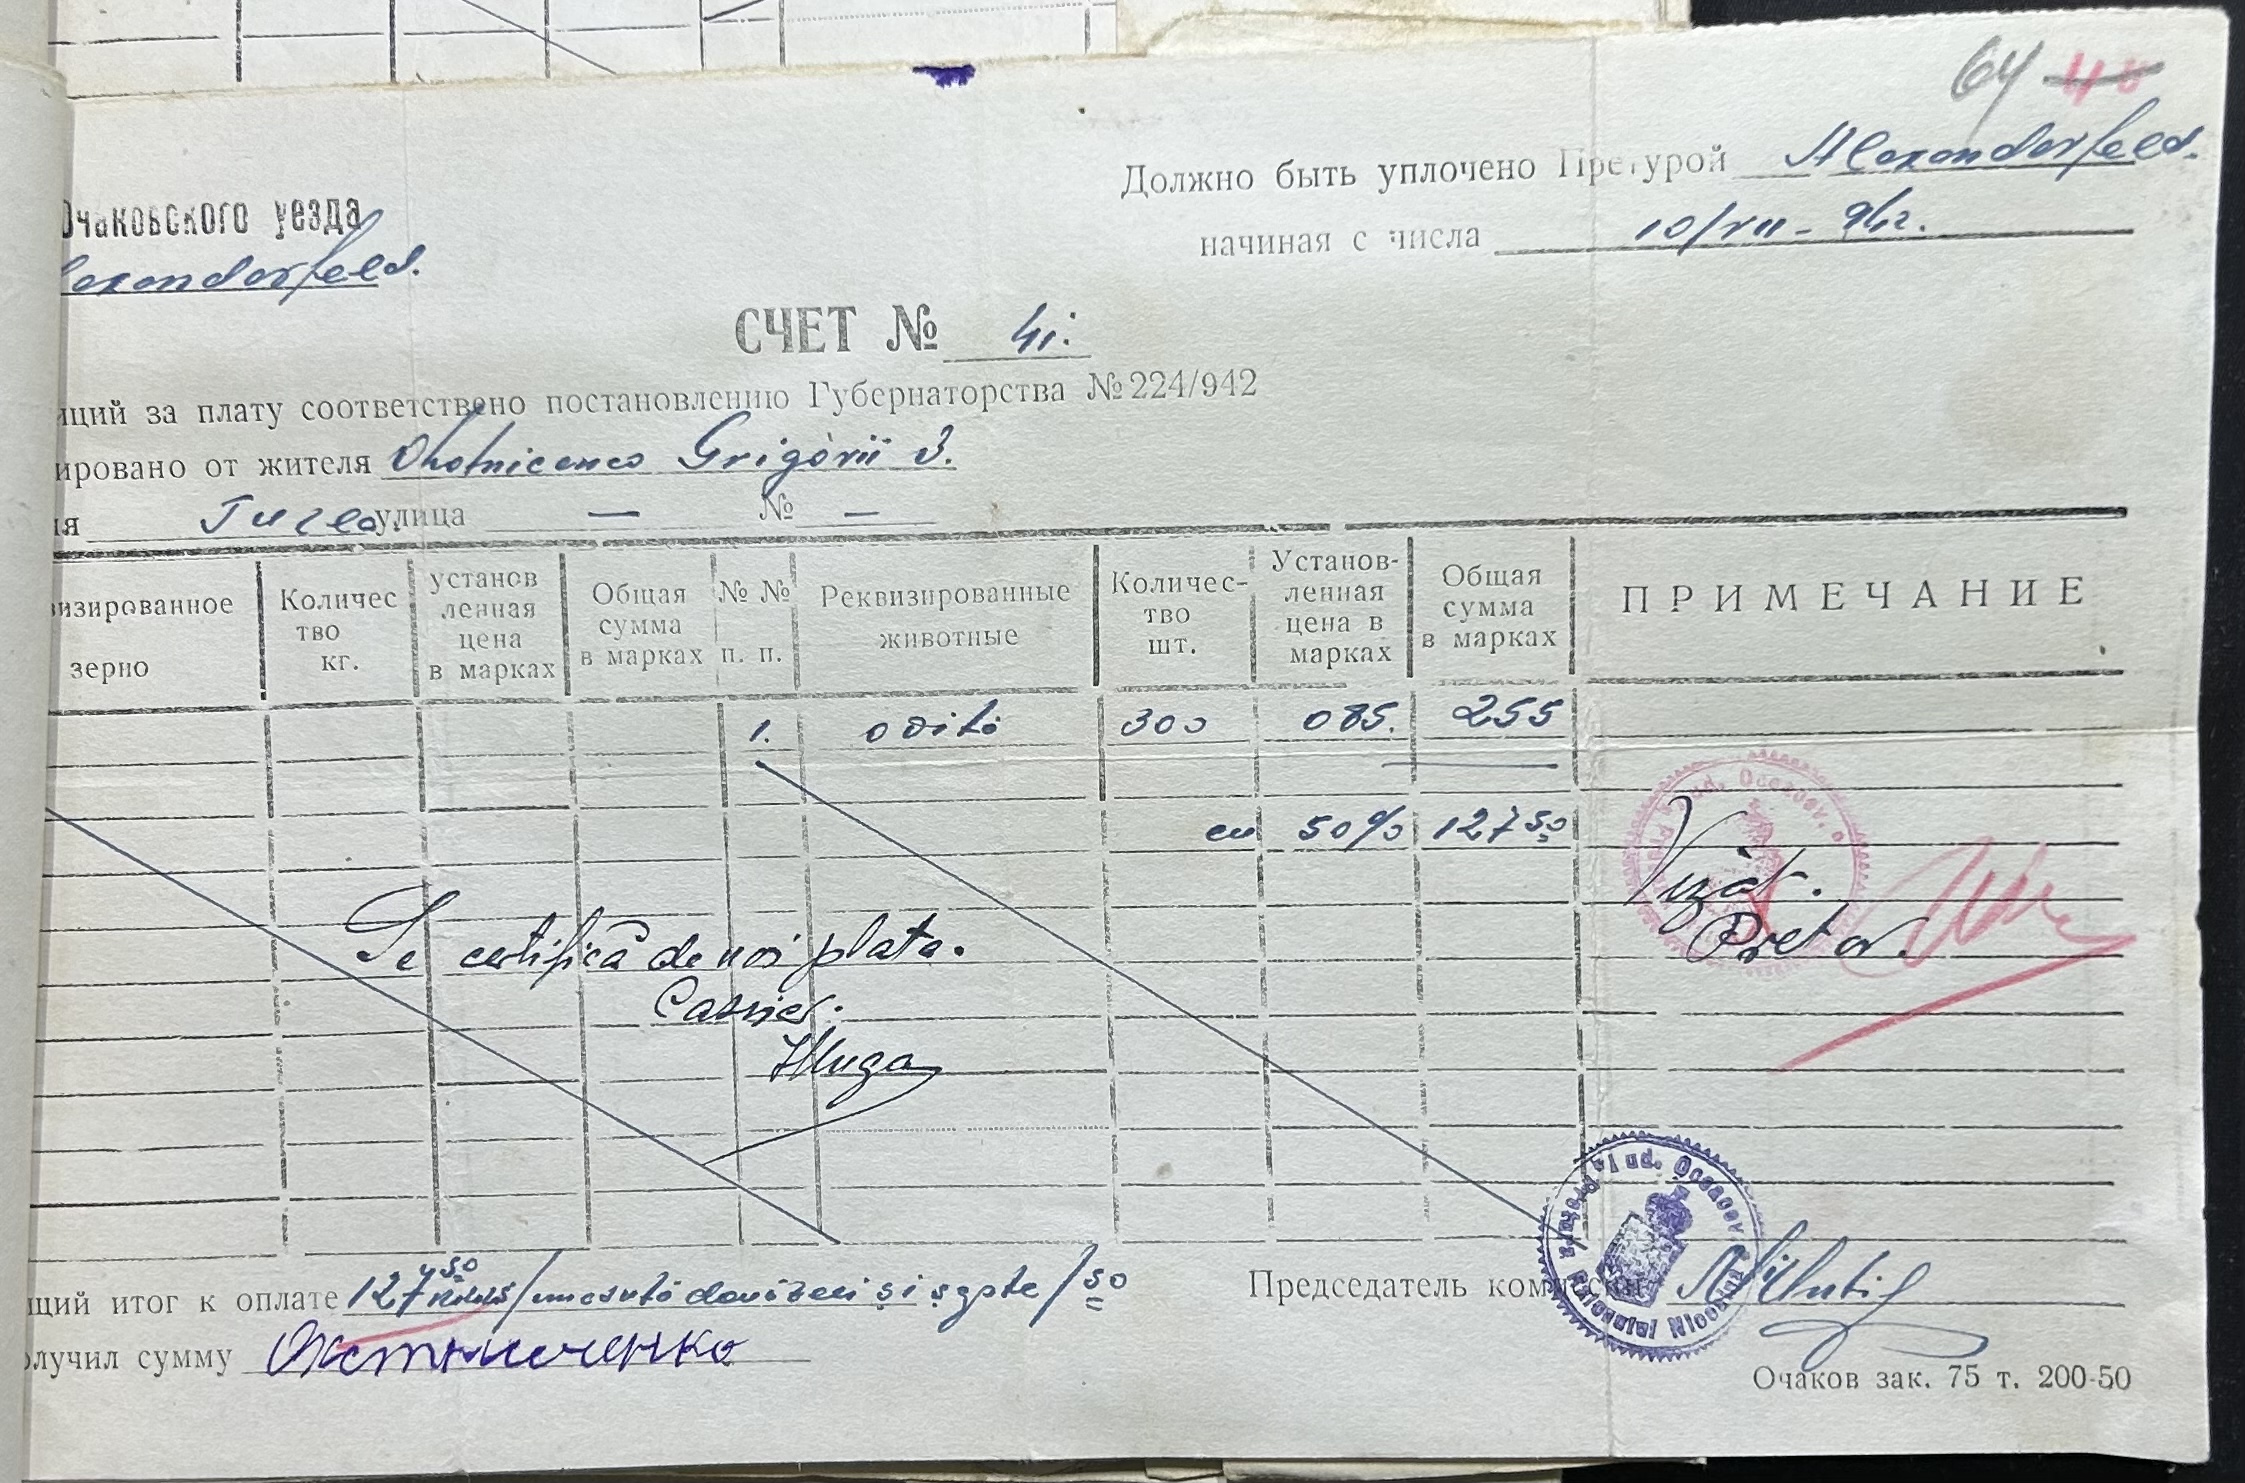 64 
Должно быть уплочено Претурой Alexandorfeld.
Очаковского уезда
начиная с числа 10/VII - 942.
lexandorfeld.
СЧЕТ № 41.
иций за плату соответствено постановлению Губернаторства №224/942
ировано от жителя Ohotnicenco Grigorii З.
ия улица — № —
изированное зерно
Количес тво кг.
установ ленная цена в марках
Общая сумма в марках
№ № п. п.
Реквизированные животные
Количес- тво шт.
Установ- ленная цена в марках
Общая сумма в марках
ПРИМЕЧАНИЕ
1. 300 085. 255
cu 50% 127 50
Vizat.
Se certifică de noi plata.
Pretor.
Cassier.
щий итог к оплате 127 50 /unasută douăzeci și șapte/50
Председатель комиссии
олучил сумму Охотниченко
Очаков зак. 75 т. 200-50